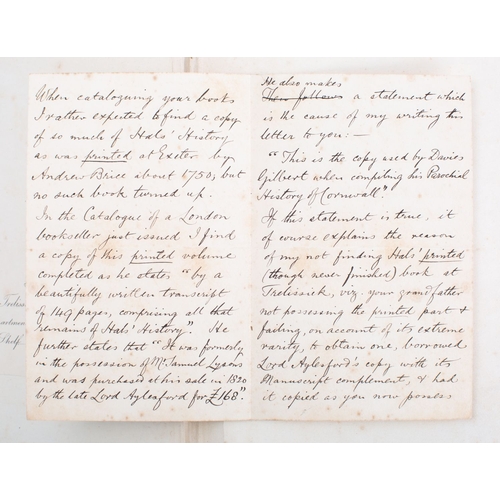 When cataloguing your books
I rather expected to find a copy
of so much of Hals' History
as was printed at Exeter by
Andrew Brice about 1750, but
no such book turned up.
In the Catalogue of a London
bookseller just issued I find
a copy of this printed volume
completed as he states "by a
beautifully written transcript
of 149 pages, comprising all that
remains of Hals' History". He
further states that "It was formerly
in the possession of Mr. Samuel Lysons
and was purchased at his sale in 1820
by the late Lord Aylesford for £168."
He also makes
Then follows a statement which
is the cause of my writing this
letter to you:—
"This is the copy used by Davies
Gilbert when compiling his Parochial
History of Cornwall".
If this statement is true, it
of course explains the reason
of my not finding Hals' printed
(though never finished) book at
Trelissick, viz. your grandfather
not possessing the printed part &
failing, on account of its extreme
rarity, to obtain one, borrowed
Lord Aylesford's copy with its
Manuscript complement, & had
it copied as you now possess
Shelf